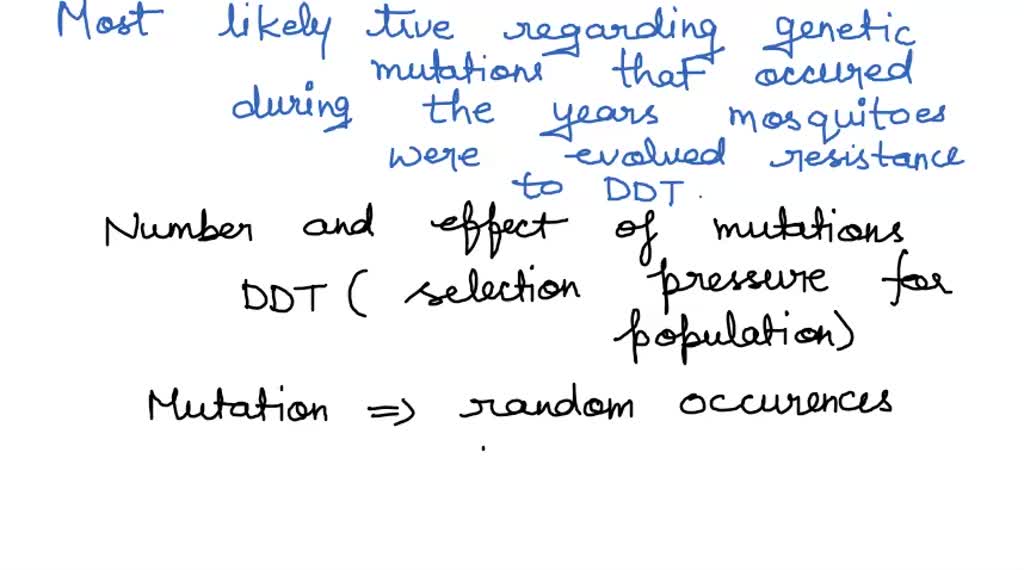 Most likely tive regarding genetic
mutations that occured
during the years mosquitoes
were evolved resistance
to DDT.
Number and effect of mutations
DDT ( selection pressure for
population)
Mutation => random occurences